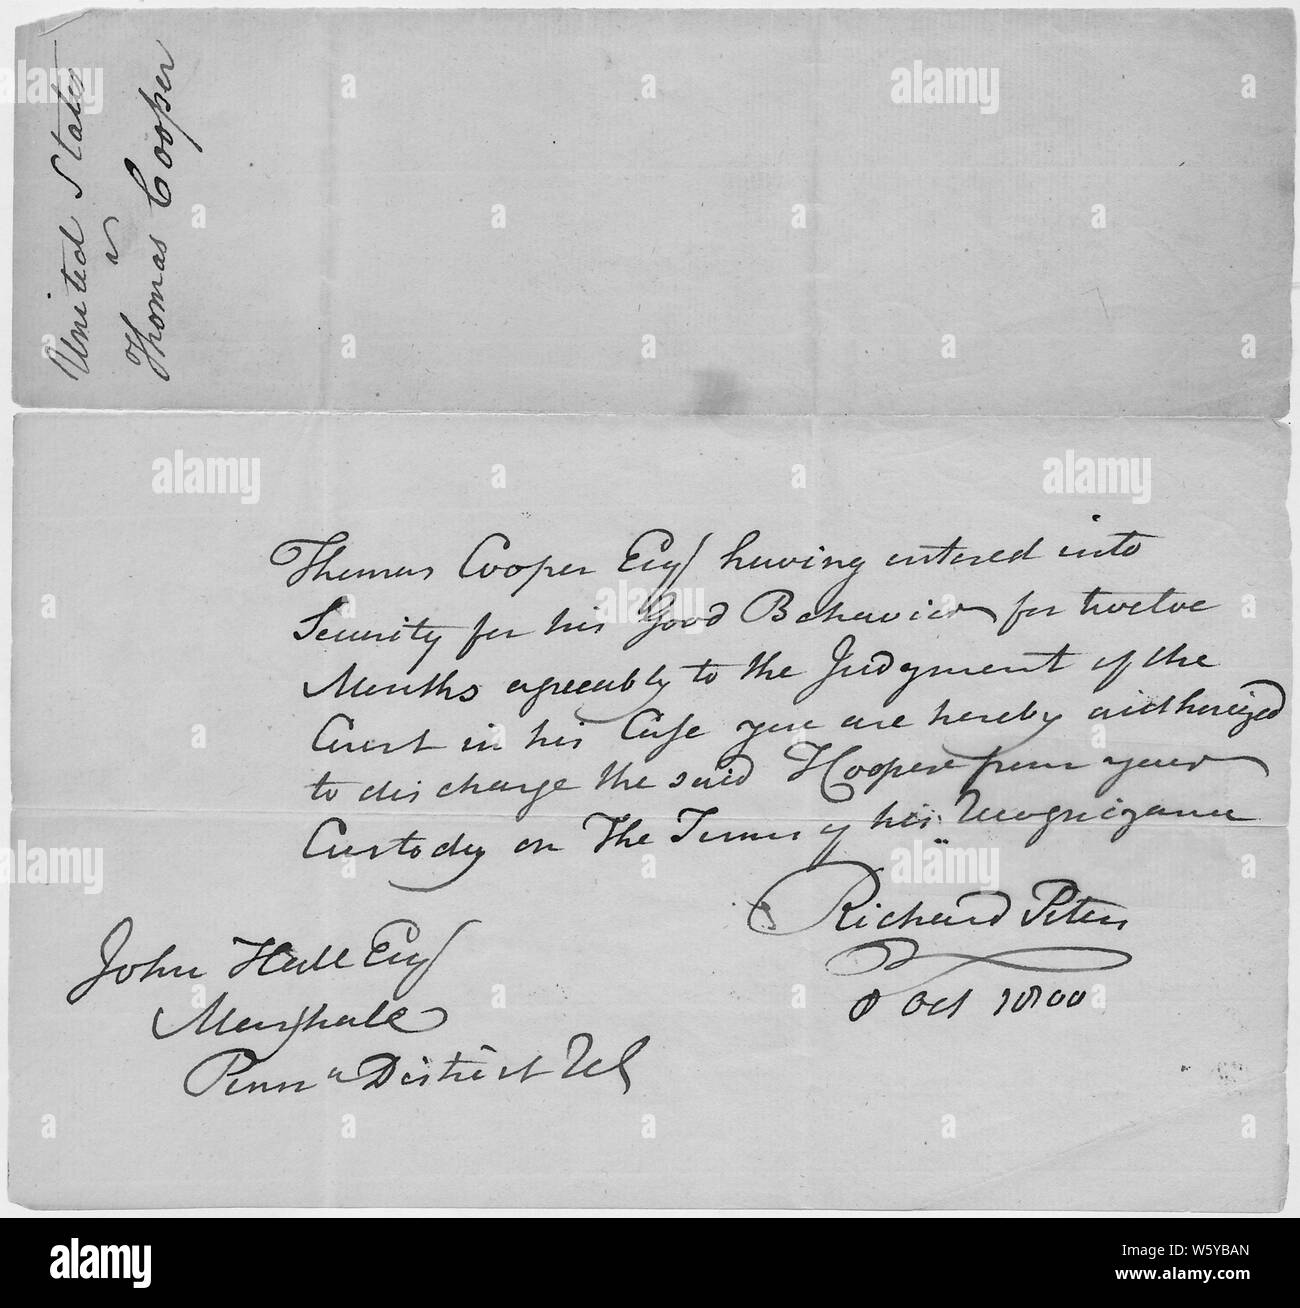 United States
v
Thomas Cooper
Thomas Cooper Esq having entered into
Security for his Good Behavior for twelve
Months agreeably to the Judgment of the
Court in his Case you are hereby authorized
to discharge the said Cooper from your
Custody on The Terms of his Recognizance
Richard Peters
8 Oct 1800
John Hall Esq
Marshall
Penn a District US
alamy
Image ID: W5YBAN
www.alamy.com